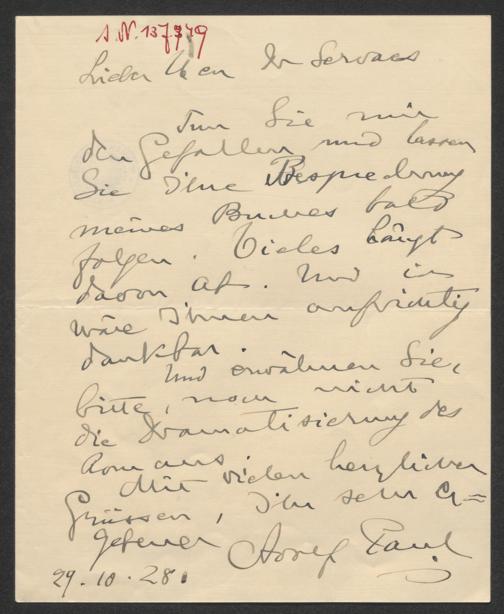 I.N. 137949
Lieber Herr Dr Servaes
Tun Sie mir
den Gefallen und lassen
Sie Ihre Besprechung
meines Buches bald
folgen. Vieles hängt
davon ab. Und ich
wäre Ihnen aufrichtig
dankbar.
Und erwähnen Sie,
bitte, noch nicht
die Dramatisierung des
Romans.
Mit vielen herzlichen
Grüssen, Ihr sehr er=
gebener Adolf Paul
29.10.28.